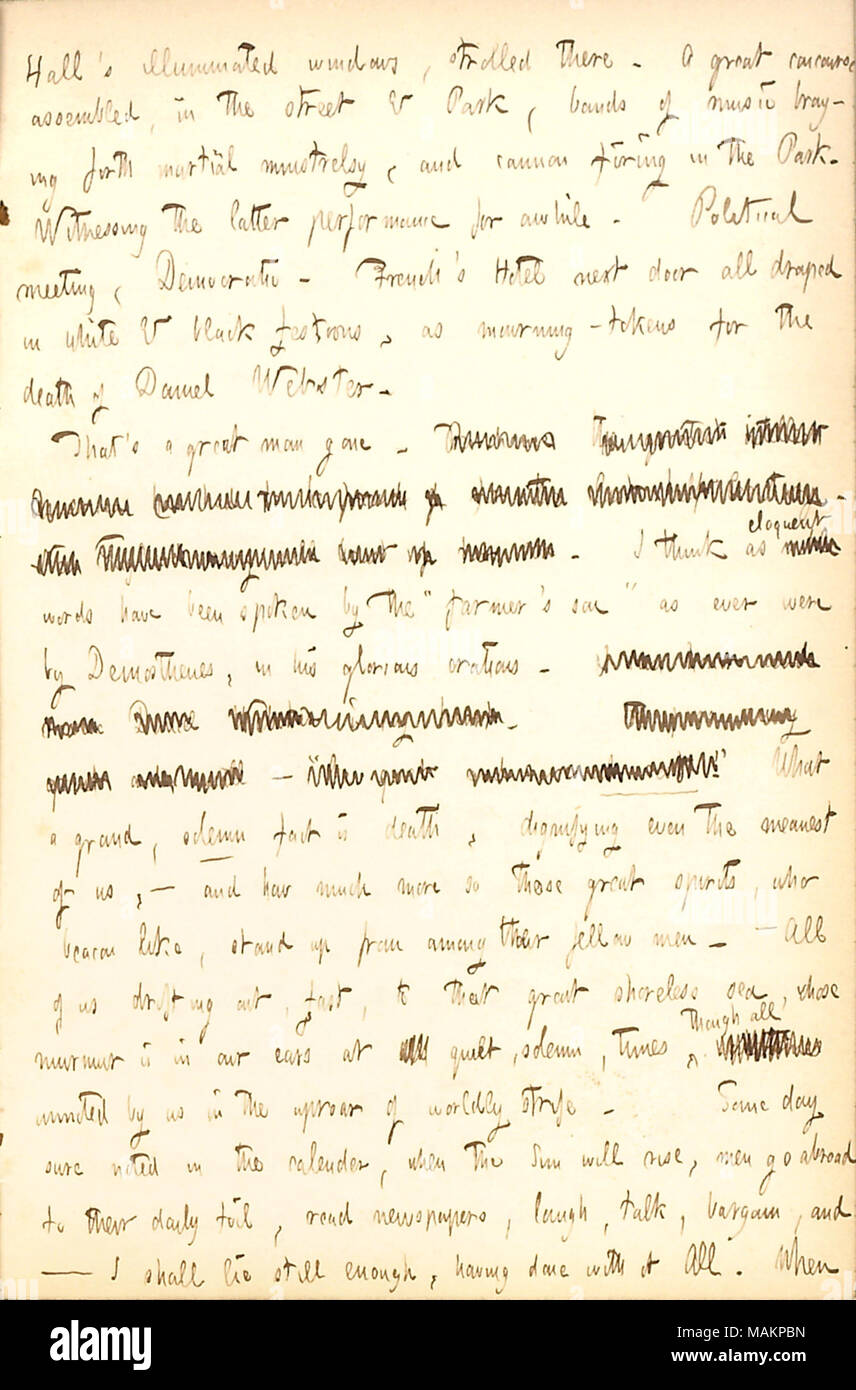 Hall's illuminated windows, strolled there. A great concourse
assembled, in the street & Park, bands of music bray-
ing forth martial minstrelsy, and cannon firing in the Park.
Witnessing the latter performance for awhile. Political
meeting, Democratic. French's Hotel next door all draped
in white & black festoons, as mourning-tokens for the
death of Daniel Webster.
That's a great man gone.
I think as eloquent
words have been spoken by the "farmer's son" as ever were
by Demosthenes, in his glorious orations.
What
a grand, solemn fact is death, dignifying even the meanest
of us, — and how much more so those great spirits, who
beacon like, stand up from among their fellow men. — All
of us drifting out, fast, to that great shoreless sea, whose
murmur is in our ears at quiet, solemn, times, though all
unnoted by us in the uproar of worldly strife. Some day
sure noted in the calender, when the Sun will rise, men go abroad
to their daily toil, read newspapers, laugh, talk, bargain, and
— I shall lie still enough, having done with it All. When
alamy
Image ID: MAKPBN
www.alamy.com